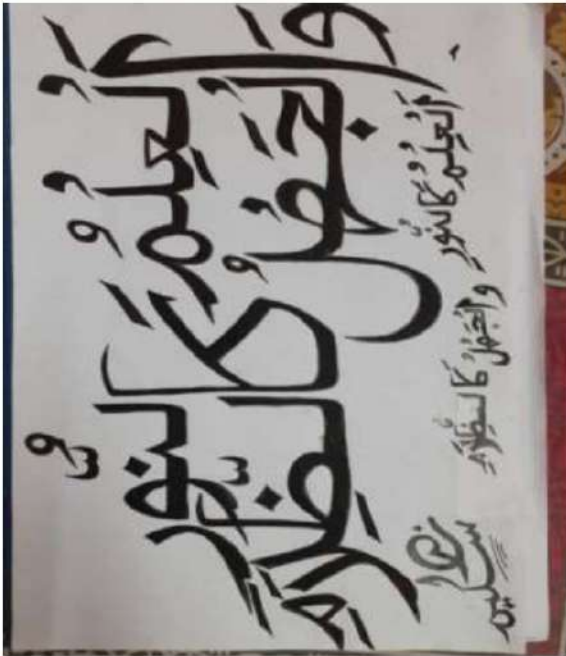 اَلْعِلْمُ كَالنُّورِ
وَالْجَهْلُ كَالظَّلَامِ
اَلْعِلْمُ كَالنُّورِ وَالْجَهْلُ كَالظَّلَامِ